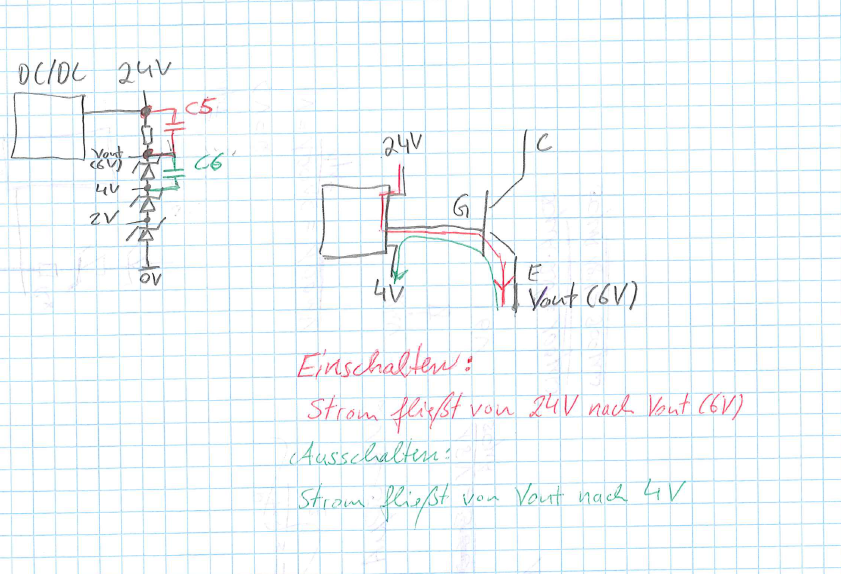 DC/DC 24V
C5
Vout
(6V)
C6
4V
2V
0V
24V
C
G
E
4V
Vout (6V)
Einschalten:
Strom fließt von 24V nach Vout (6V)
Ausschalten:
Strom fließt von Vout nach 4V